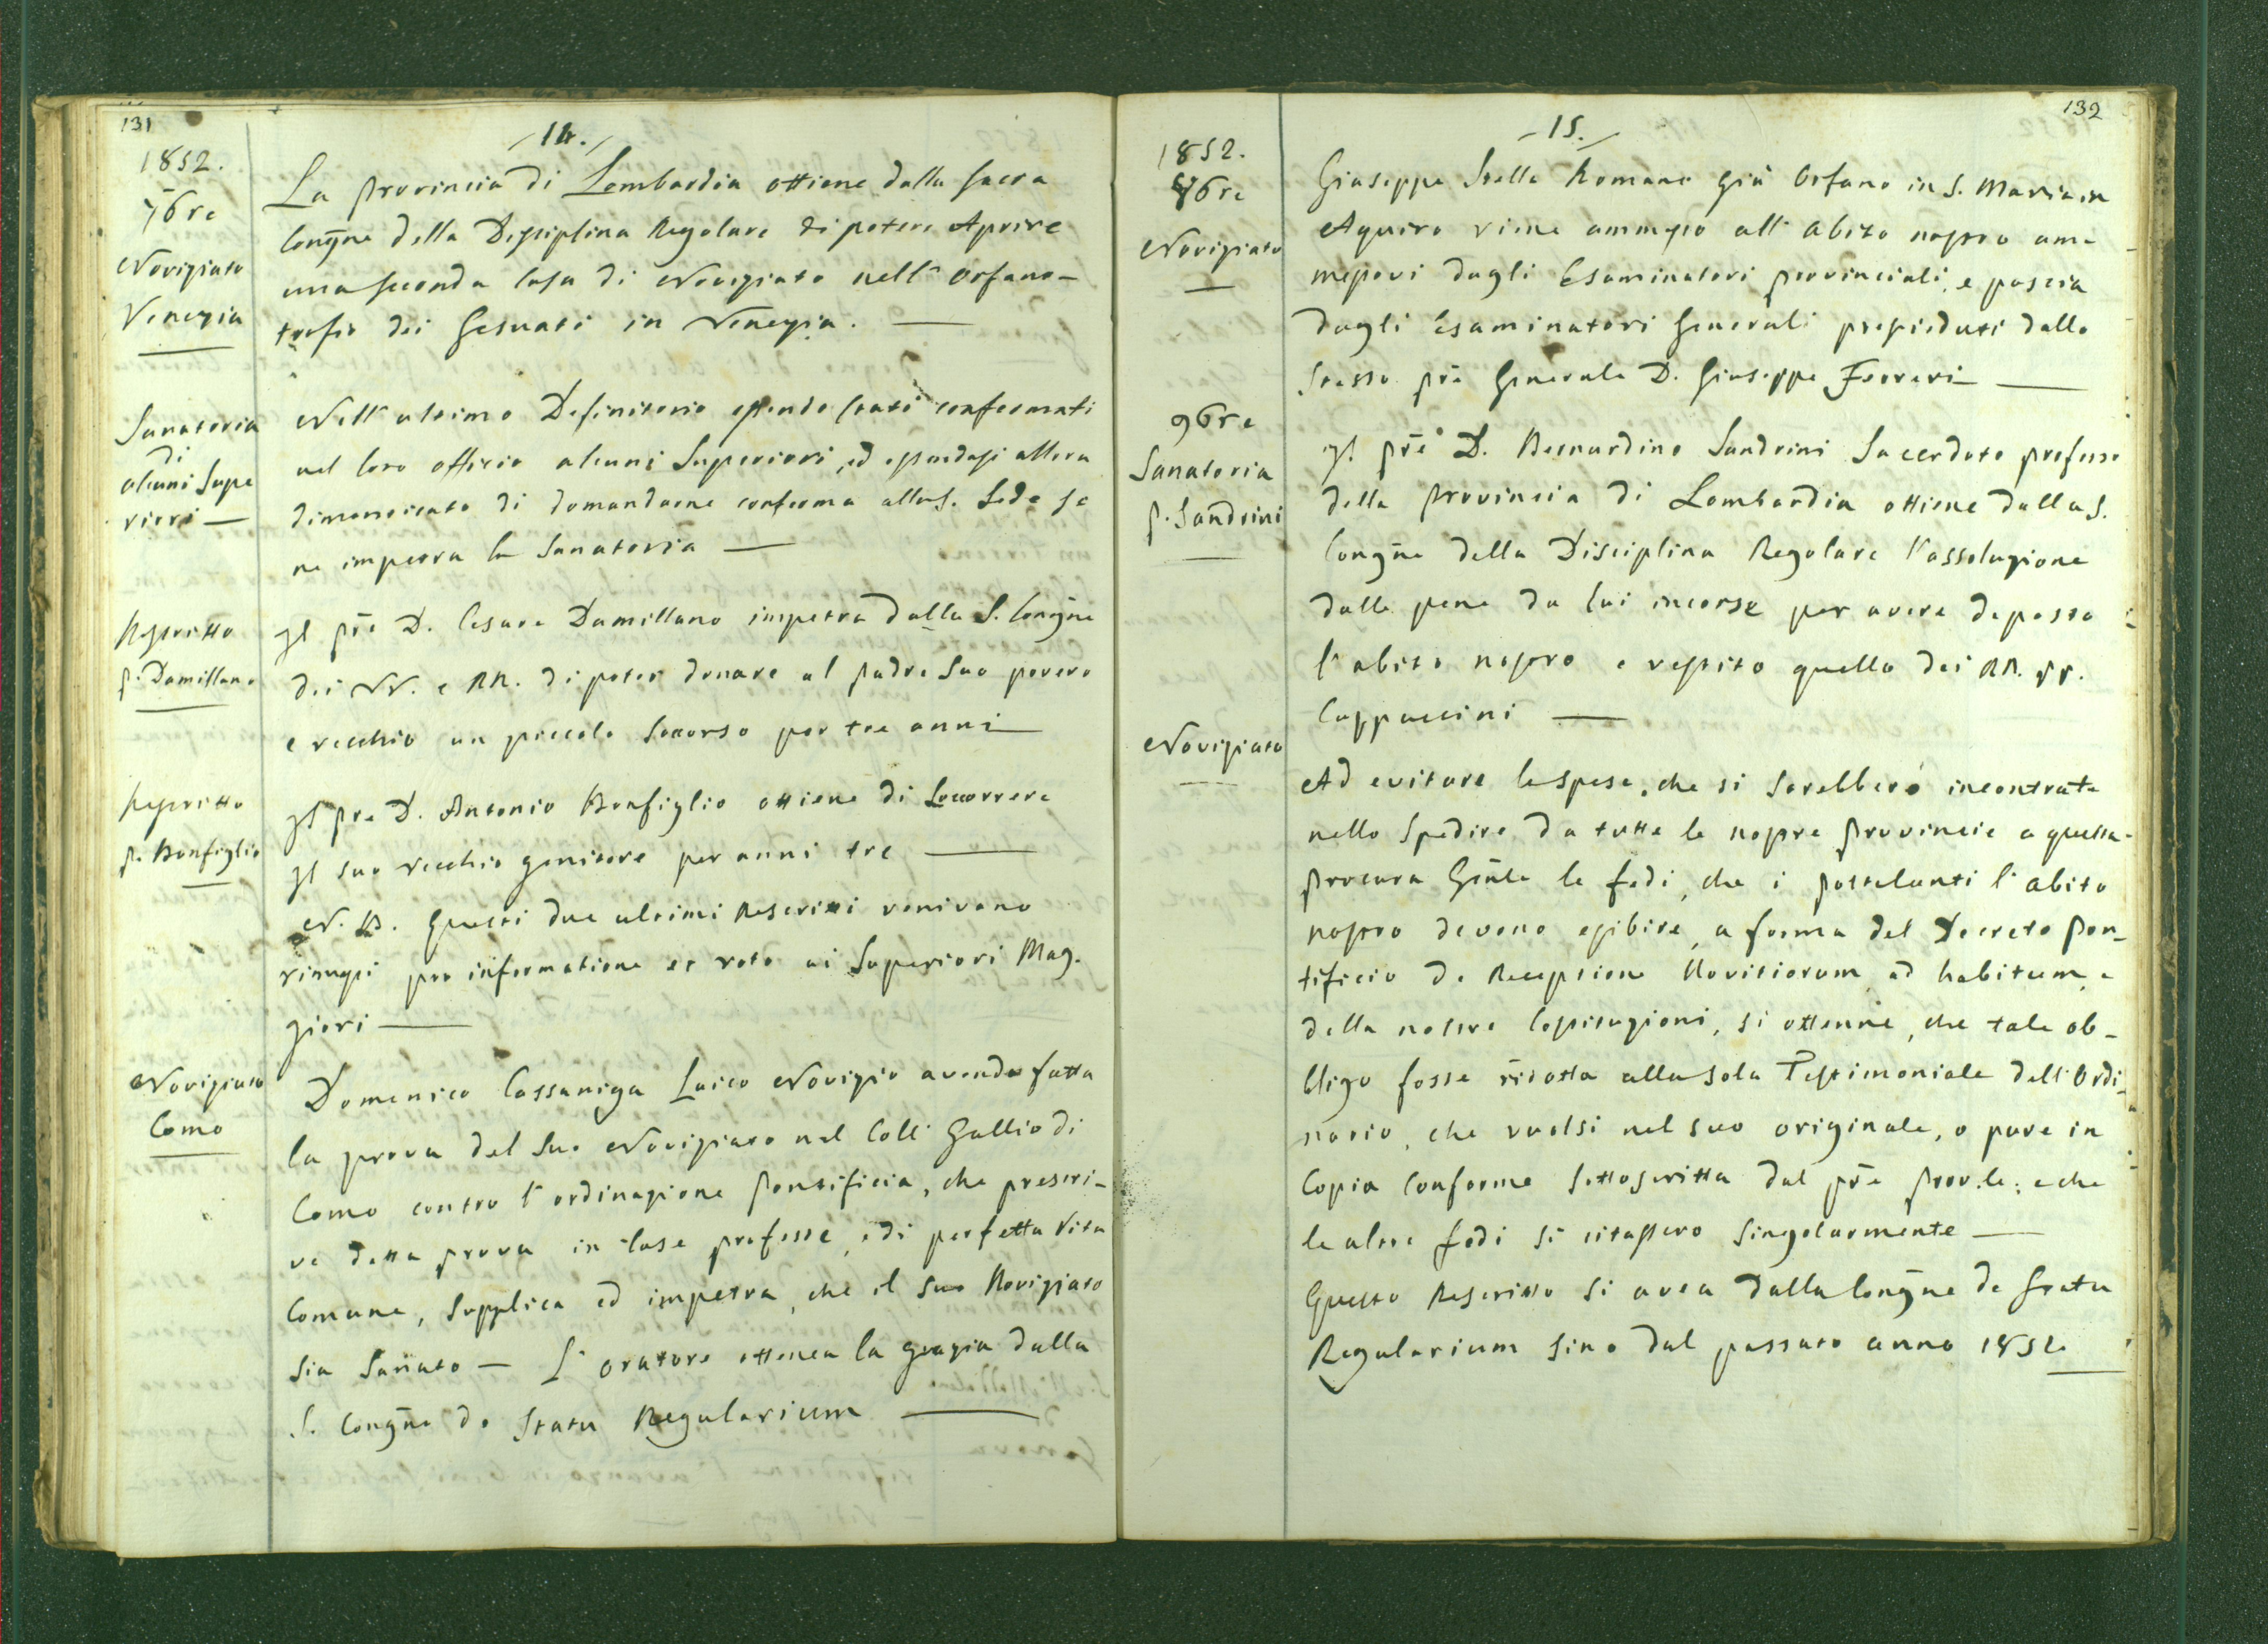 131
14.
1852.
7bre
Noviziato
Venezia
La Provincia di Lombardia ottiene dalla Sacra
Congne della Disciplina Regolare di potere Aprire
una seconda Casa di Noviziato nell' Orfano-
trofio dei Gesuati in Venezia. —
Sanatoria
di
alcuni Supe
riori —
Nell' ultimo Definitorio essendo stati confermati
nel loro officio alcuni Superiori, ed essendosi allora
dimenticato di domandarne conferma alla S. Sede se
ne impetra la Sanatoria —
Rescritto
P. Damillano
Il pre D. Cesare Damillano impetra dalla S. Congne
dei VV. e RR. di poter donare al padre suo povero
e vecchio un piccolo soccorso per tre anni —
Rescritto
P. Bonfiglio
Il pre D. Antonio Bonfiglio ottiene di soccorrere
Il suo vecchio genitore per anni tre —
N. B. Questi due ultimi Rescritti venivano
rimessi pro informatione et voto ai Superiori Mag-
giori —
Noviziato
Como
Domenico Cassaniga Laico Novizio avendo fatta
la prova del suo Noviziato nel Coll. Gallio di
Como contro l' ordinazione Pontificia, che prescri-
ve detta prova in Case professe, e di perfetta Vita
Comune, supplica ed impetra, che il suo Noviziato
sia Sanato — L' oratore ottenea la grazia dalla
S. Congne de Statu Regularium —
132
15.
1852.
8bre
Noviziato
Giuseppe Stella Romano già Orfano in S. Maria in
Aquiro viene ammesso all' abito nostro am-
messovi dagli Esaminatori Provinciali, e poscia
dagli Esaminatori Generali presieduti dallo
stesso pre Generale D. Giuseppe Ferreri —
9bre
Sanatoria
P. Sandrini
Il pre D. Bernardino Sandrini Sacerdote professo
della Provincia di Lombardia ottiene dalla S.
Congne della Disciplina Regolare l' assoluzione
dalle pene da lui incorse per avere deposto
l' abito nostro e vestito quello dei RR. PP.
Cappuccini —
Noviziato
Ad evitare le spese, che si sarebbero incontrate
nello spedire da tutte le nostre Provincie a questa
Procura Gnle le fedi, che i postulanti l' abito
nostro devono esibire, a forma del Decreto Pon-
tificio de Receptione Novitiorum ad habitum, e
delle nostre Costituzioni, si ottenne, che tale ob-
bligo fosse ridotto alla sola Testimoniale dell' Ordi-
nario, che vuolsi nel suo originale, o pure in
Copia conforme sottoscritta dal pre Prov.le; e che
le altre fedi si citassero singolarmente —
Questo Rescritto si avea dalla Congne de statu
Regularium sino dal passato anno 1852.